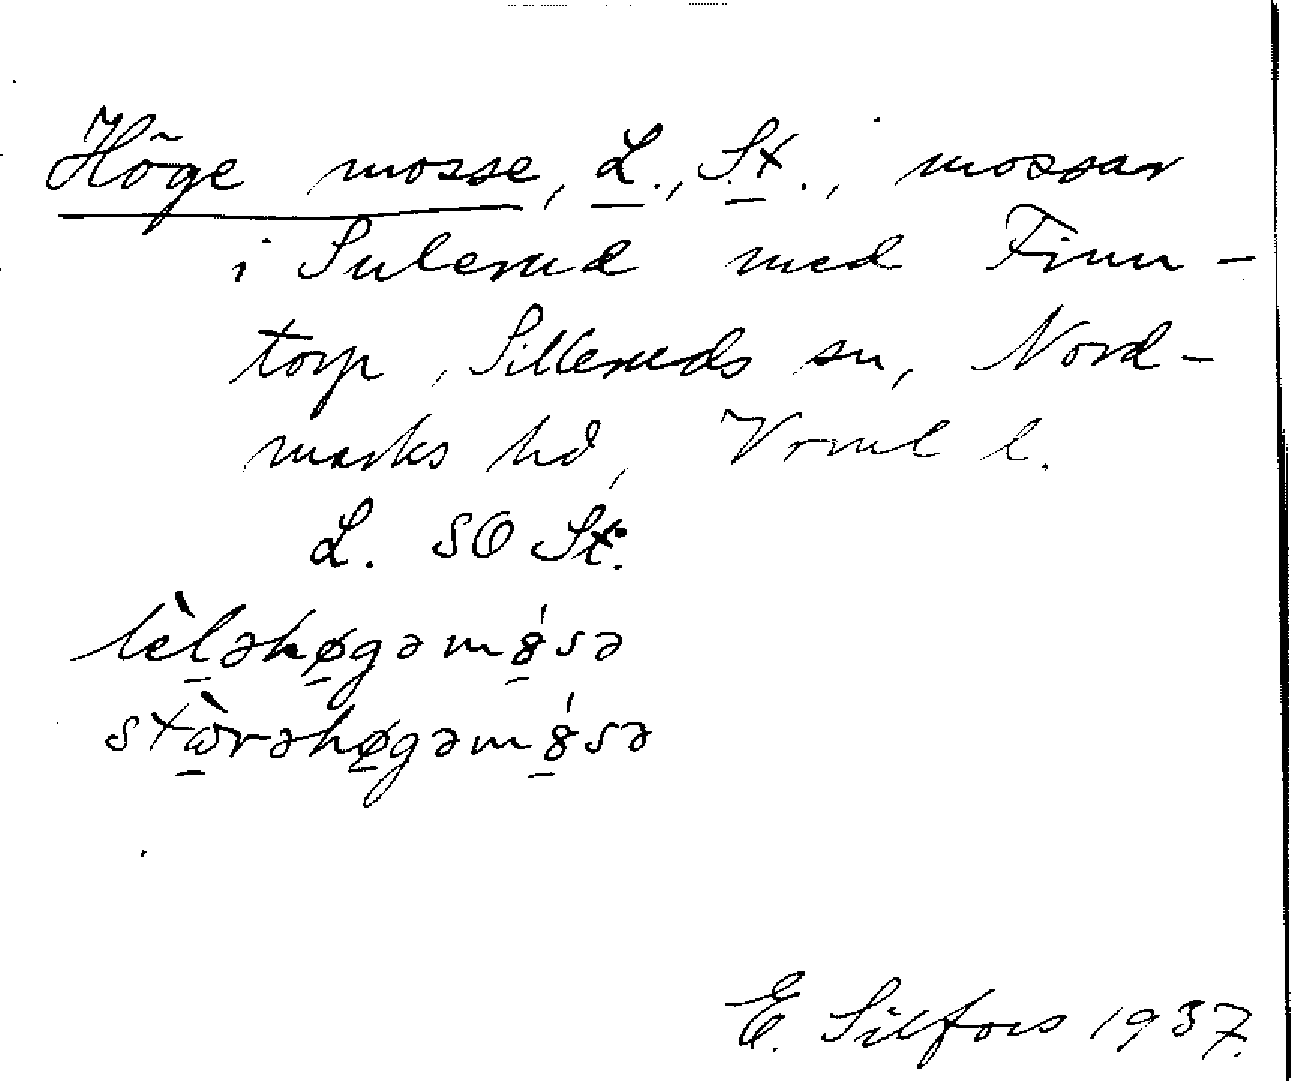 Höge mosse, L., St., mossar
i Sulerud med Finn-
torp, Silleruds sn, Nord-
marks hd, Vrml l.
L. SO St.
lèl̠əhø̠gəmȣ̠́sə
stæ̠̀rəhø̠gəmȣ̠́sə
E. Silfors 1937.